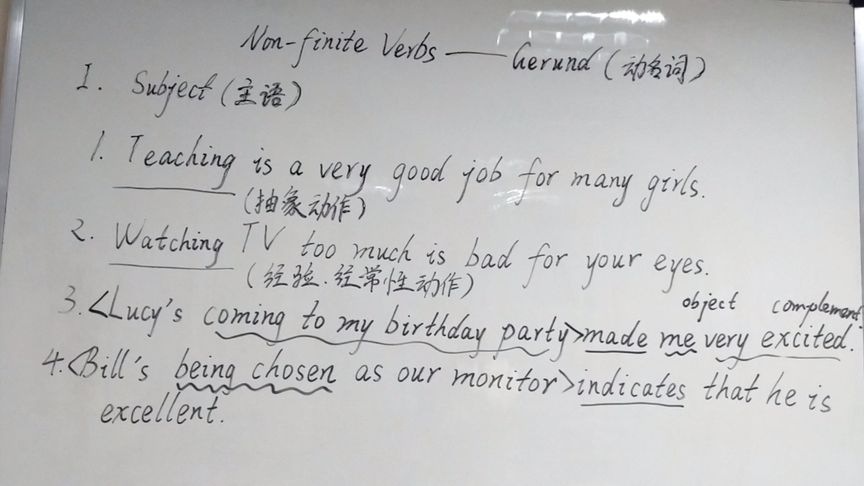 Non-finite Verbs —— Gerund (动名词)
I. Subject (主语)
1. Teaching is a very good job for many girls.
(抽象动作)
2. Watching TV too much is bad for your eyes.
(经验.经常性动作)
object complement
3. <Lucy's coming to my birthday party>made me very excited.
4. <Bill's being chosen as our monitor>indicates that he is
excellent.